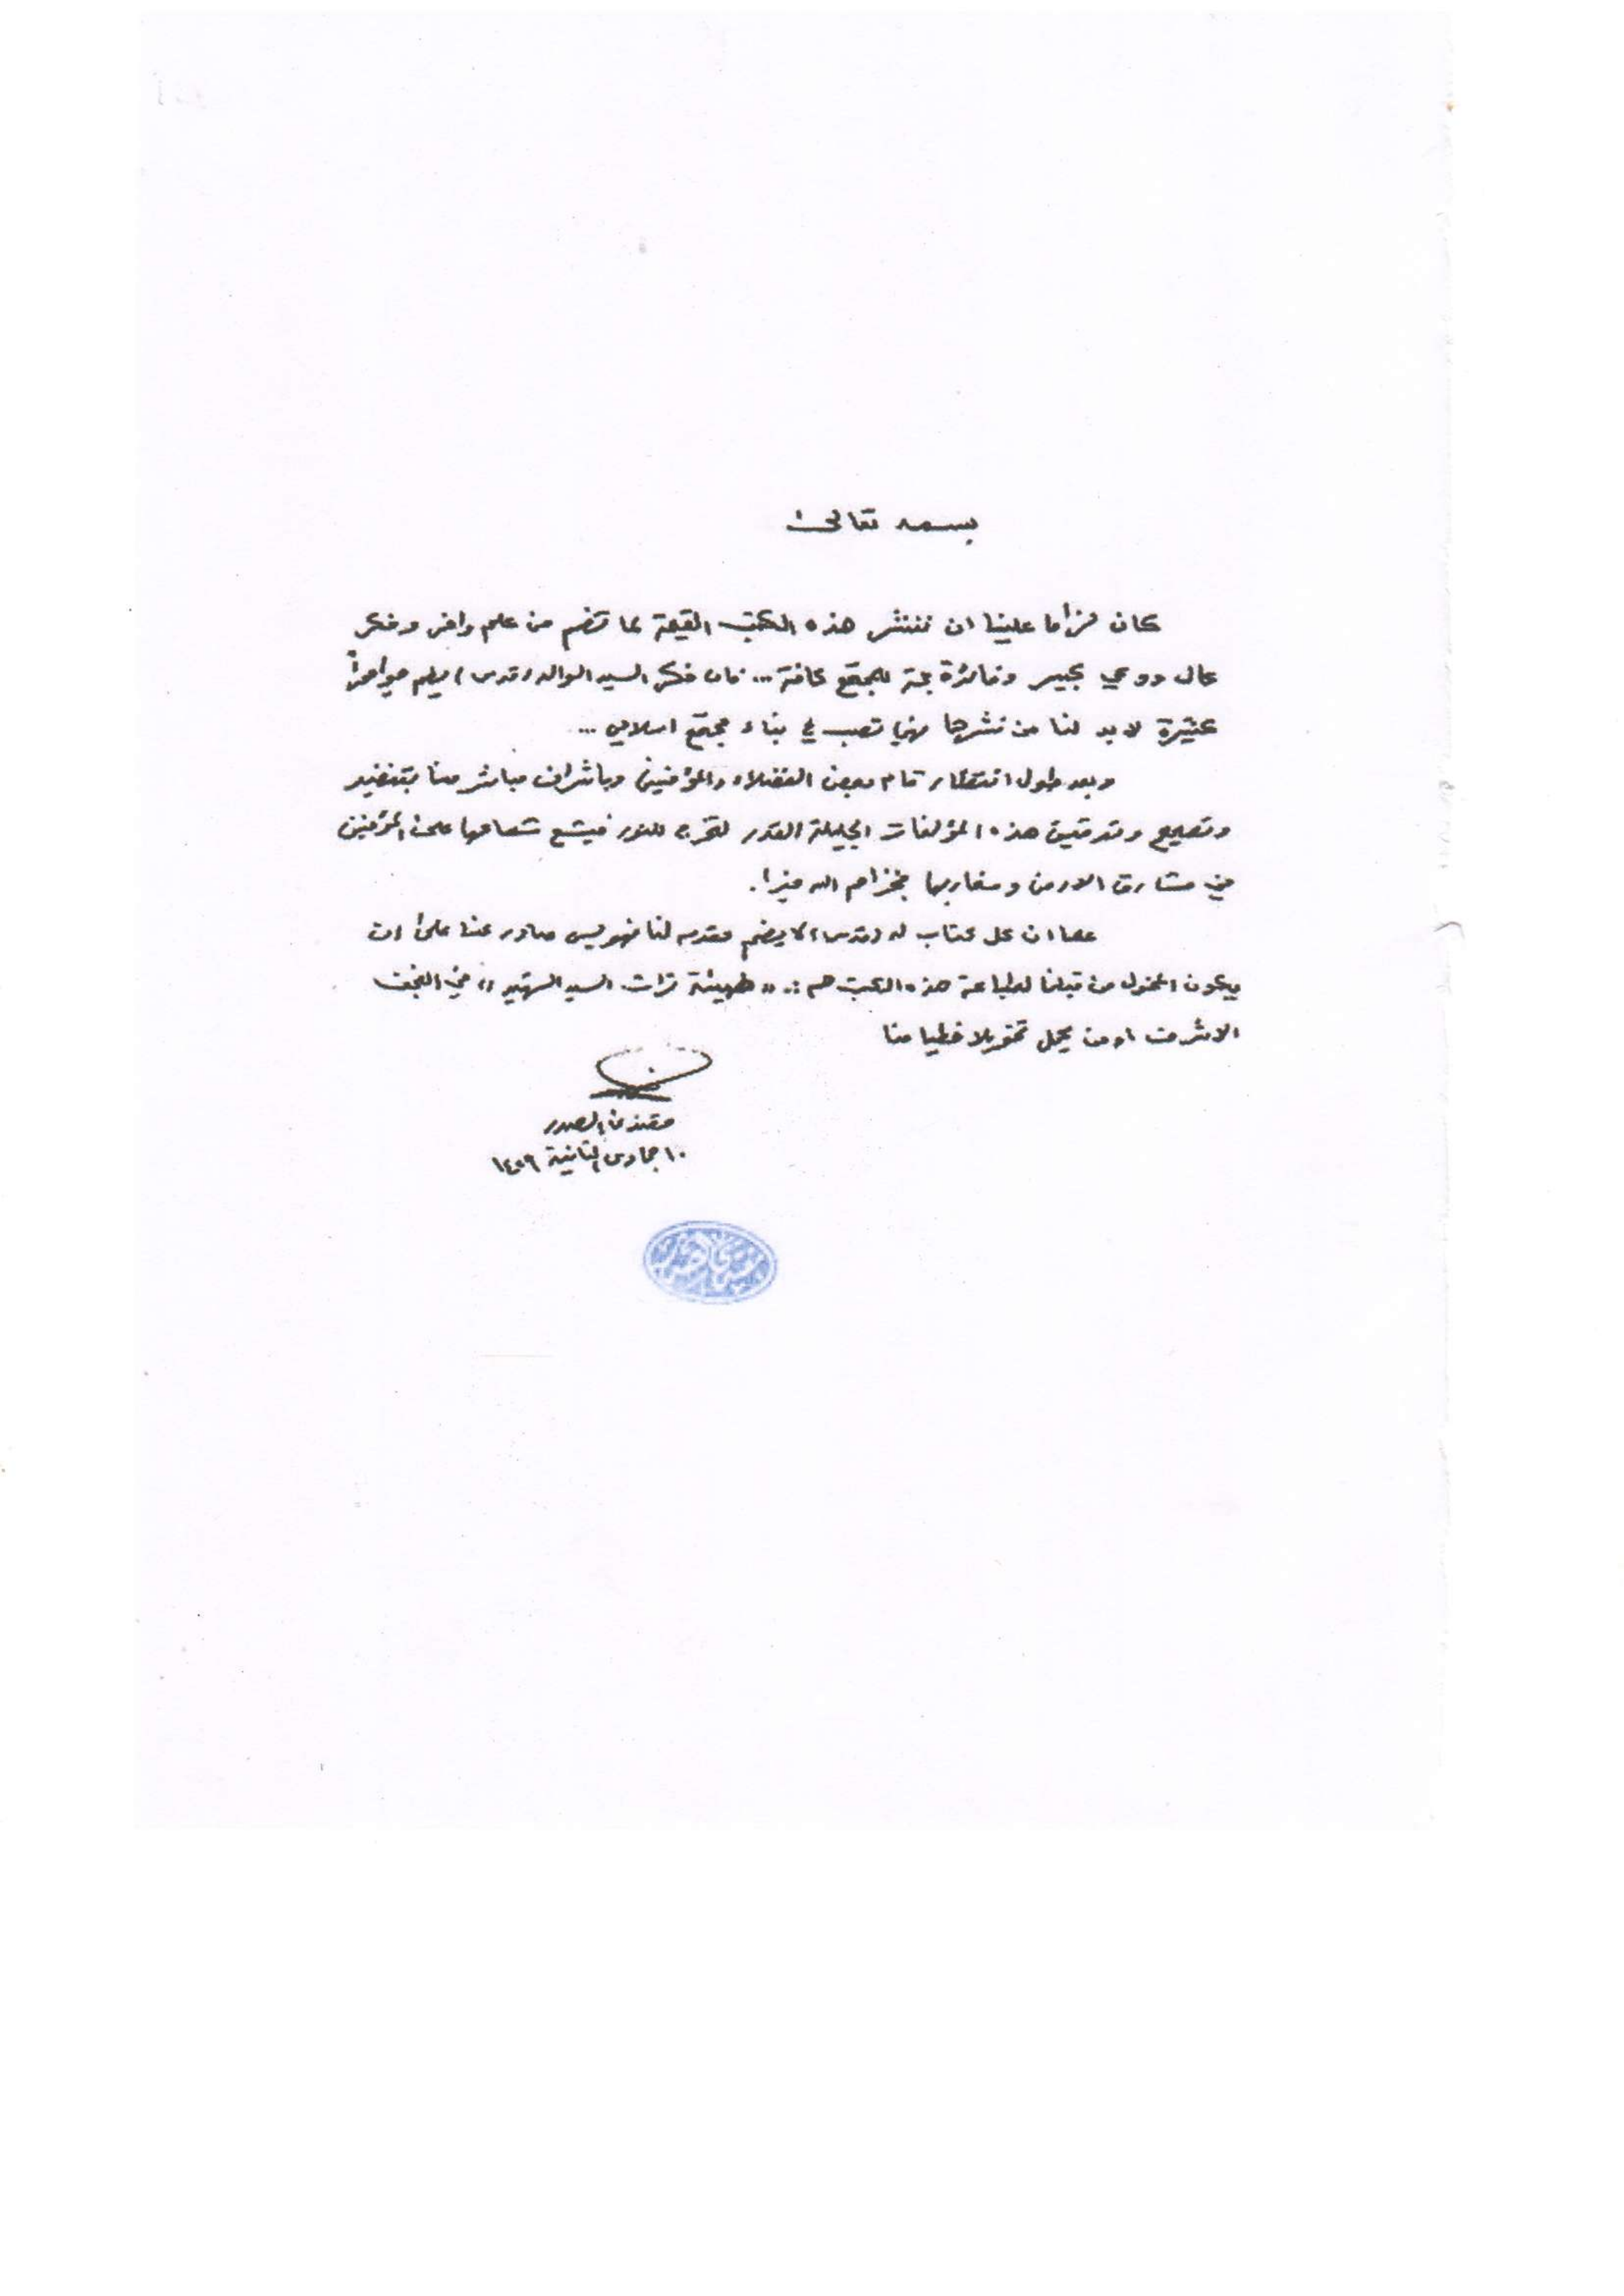 بسمه تعالى
كان لزاما علينا ان ننشر هذه الكتب القيمة لما تضم من علم وافر وفكر
عال ووعي كبير وفائدة جمة للمجتمع كافة ... فان فكر السيد الوالد (قدس) يضم جواهراً
كثيرة لا بد لنا من نشرها فهي تصب في بناء مجتمع اسلامي ...
وبعد طول انتظار قام بعض الفضلاء والمؤمنين وباشراف مباشر منا بتنضيد
وتصحيح وتدقيق هذه المؤلفات الجليلة القدر لتخرج للنور فيشع شعاعها على المؤمنين
في مشارق الارض ومغاربها فجزاهم الله خيرا.
علما ان كل كتاب له (قدس) لا يضم مقدمه لنا فهو ليس صادر عنا على ان
يكون المخول من قبلنا لطباعة هذه الكتب هم :. (( هيئة تراث السيد الشهيد )) في النجف
الاشرف او من يحمل تخويلا خطيا منا
مقتدى الصدر
١٠ جمادى الثانية ١٤٢٩
مقتدى الصدر